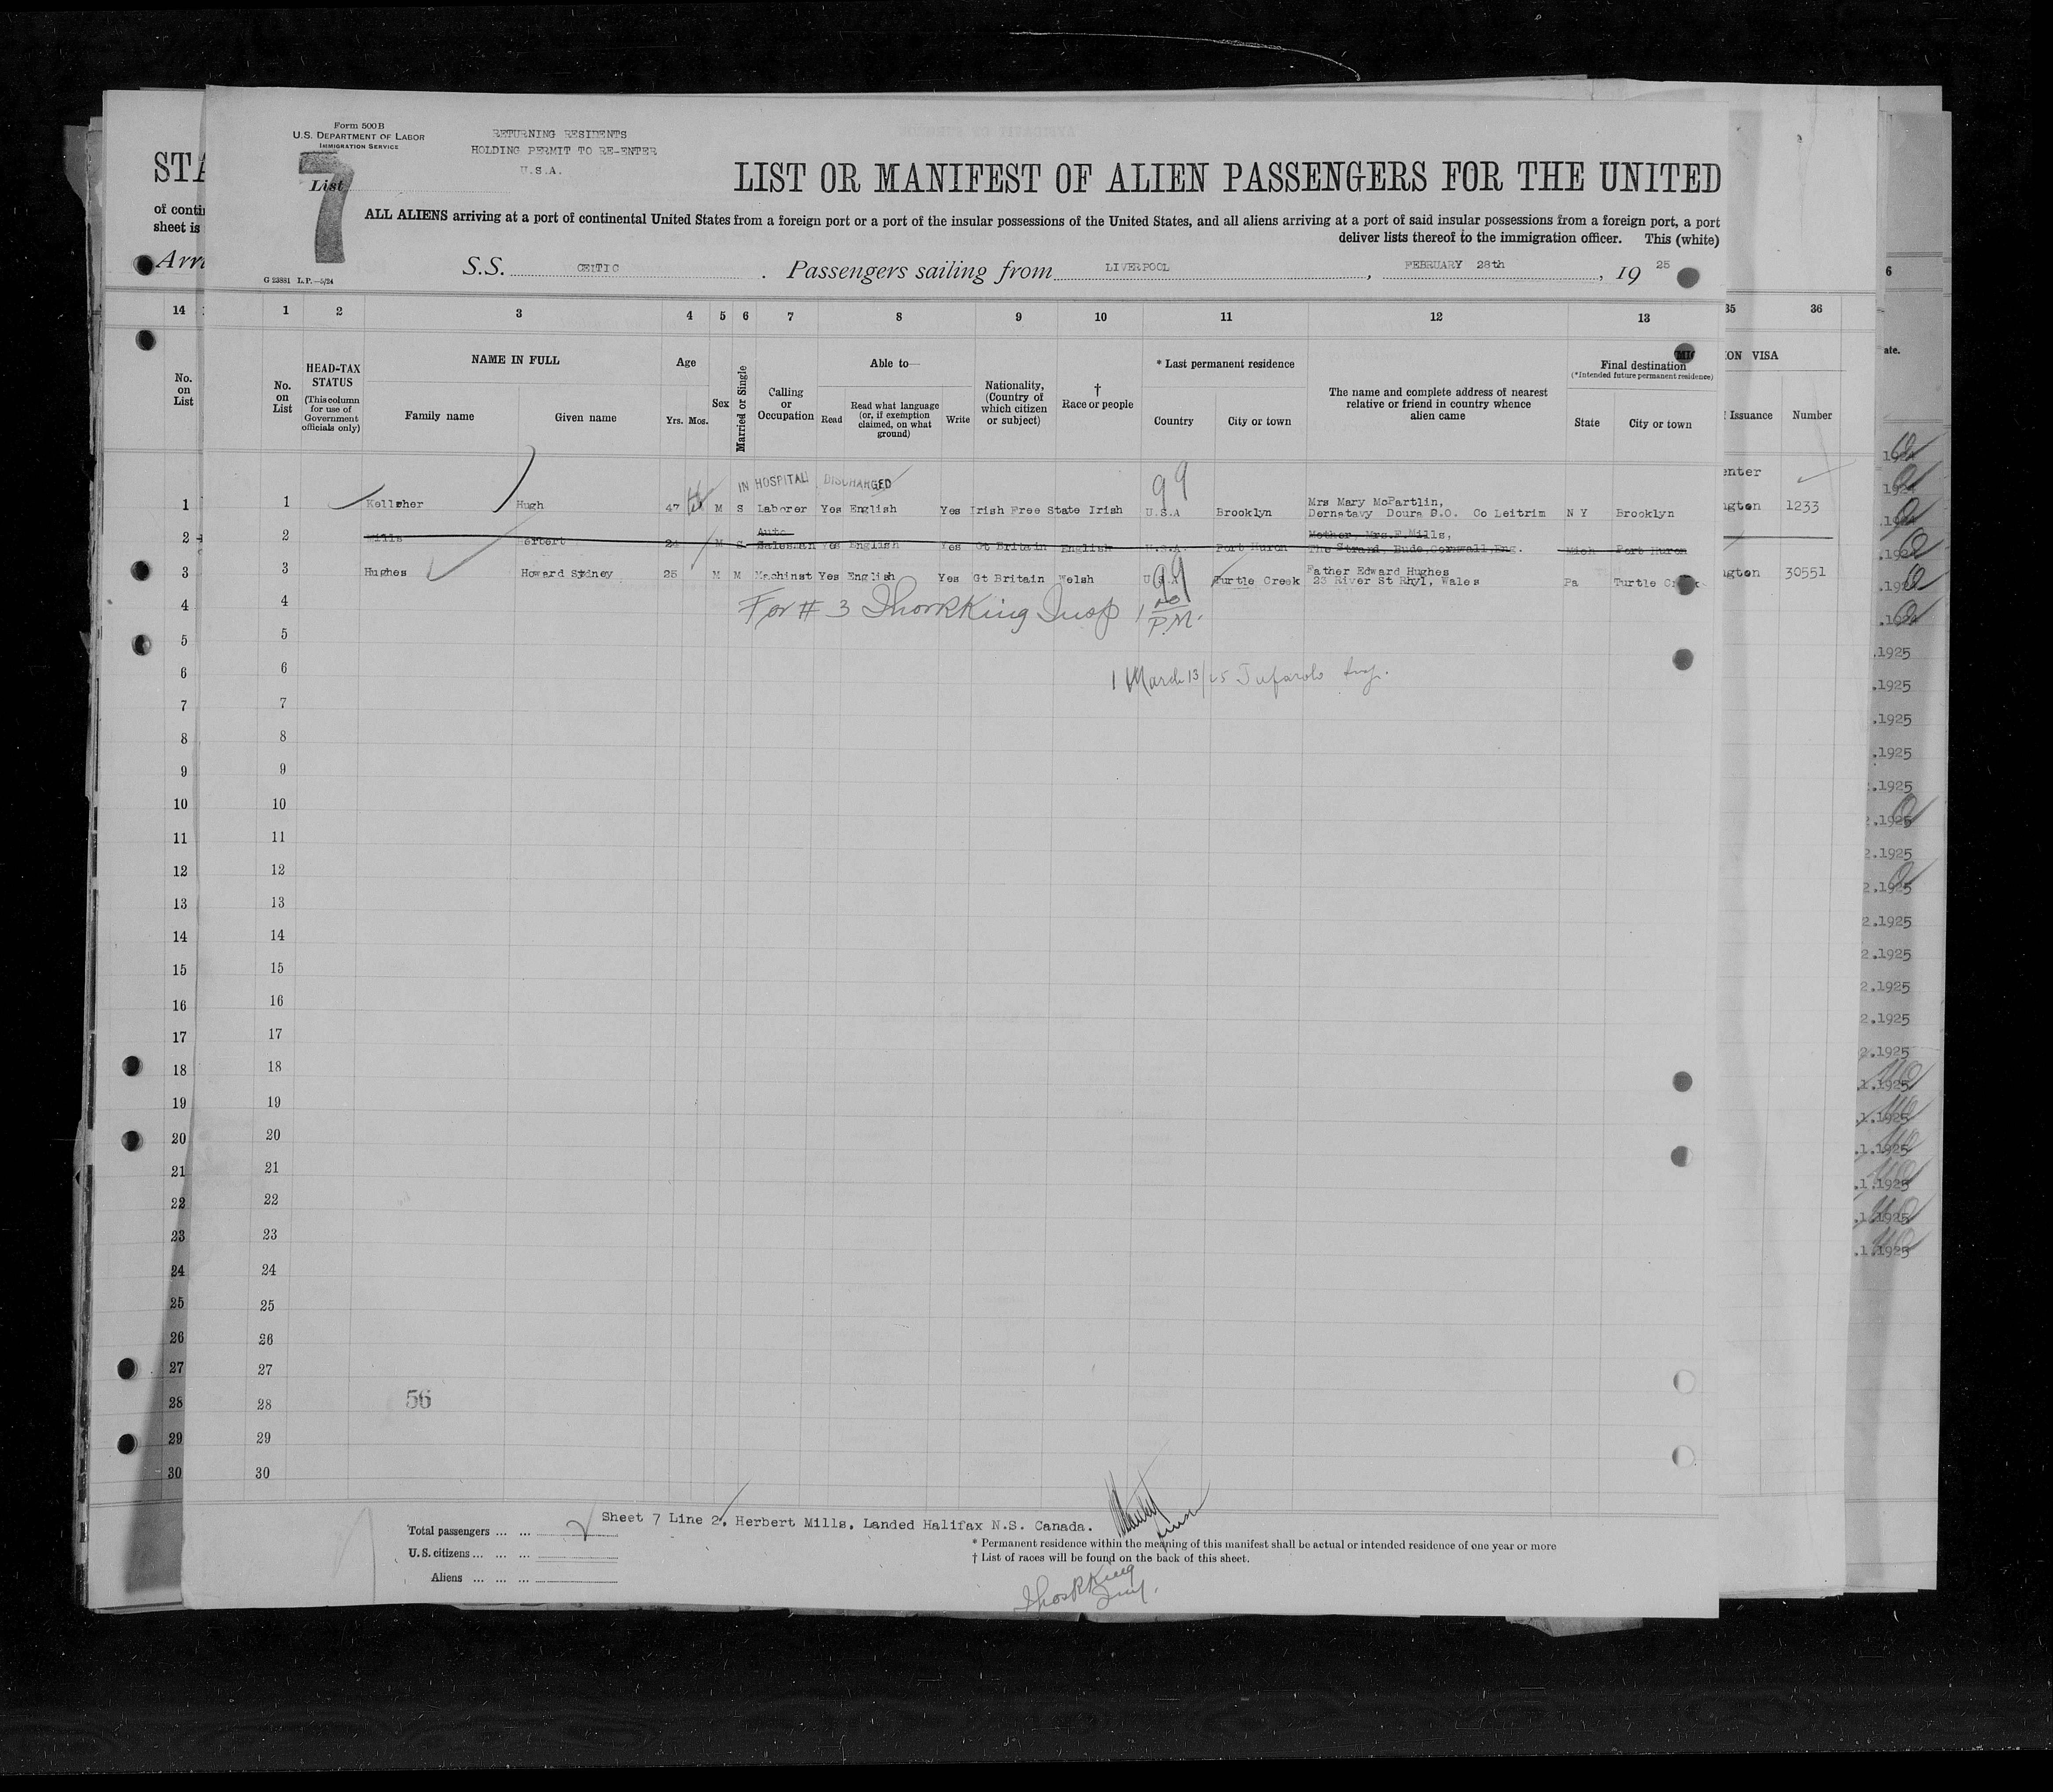 Form 500 B
U.S. DEPARTMENT OF LABOR
IMMIGRATION SERVICE
RETURNING RESIDENTS
HOLDING PERMIT TO RE-ENTER
U.S.A.
List
7
LIST OR MANIFEST OF ALIEN PASSENGERS FOR THE UNITED
STA
ALL ALIENS arriving at a port of continental United States from a foreign port or a port of the insular possessions of the United States, and all aliens arriving at a port of said insular possessions from a foreign port, a port
deliver lists thereof to the immigration officer. This (white)
of conti
sheet is
Arri
G 23881 L.P.—5/24
S.S. CELTIC . Passengers sailing from LIVERPOOL , FEBRUARY 28th , 19 25
14 1 2 3 4 5 6 7 8 9 10 11 12 13 35 36
No. on List
No. on List
HEAD-TAX STATUS
(This column for use of Government officials only)
NAME IN FULL
Family name
Given name
Age
Yrs. Mos.
Sex
Married or Single
Calling or Occupation
Able to—
Read
Read what language (or, if exemption claimed, on what ground)
Write
Nationality, (Country of which citizen or subject)
† Race or people
* Last permanent residence
Country
City or town
The name and complete address of nearest relative or friend in country whence alien came
Final destination
(*Intended future permanent residence)
State
City or town
ION VISA
Issuance
Number
ate.
IN HOSPITAL DISCHARGED
99
enter
1 1 Kelleher Hugh 47 M S Laborer Yes English Yes Irish Free State Irish U.S.A Brooklyn Mrs Mary McPartlin,
Dernatavy Doura S.O. Co Leitrim N Y Brooklyn ngton 1233
2 2 Mills Herbert 24 M S Auto
Salesman Yes English Yes Gt Britain English U.S.A. Port Huron Mother, Mrs.F.Mills,
The Strand, Bude,Cornwall,Eng. Mich Port Huron
3 3 Hughes Howard Sydney 25 M M Machinst Yes English Yes Gt Britain Welsh U.S.A Turtle Creek Father Edward Hughes
23 River St Rhyl, Wales Pa Turtle Creek ngton 30551
99
For # 3 Thos R King Insp 1
P.M.
1 March 13/25 Insp.
4 4
5 5
6 6
7 7
8 8
9 9
10 10
11 11
12 12
13 13
14 14
15 15
16 16
17 17
18 18
19 19
20 20
21 21
22 22
23 23
24 24
25 25
26 26
27 27
28 28
29 29
30 30
56
Sheet 7 Line 2, Herbert Mills, Landed Halifax N.S. Canada.
Total passengers ... ...
U.S. citizens ... ... ...
Aliens ... ... ...
* Permanent residence within the meaning of this manifest shall be actual or intended residence of one year or more
† List of races will be found on the back of this sheet.
Thos R King
Insp.